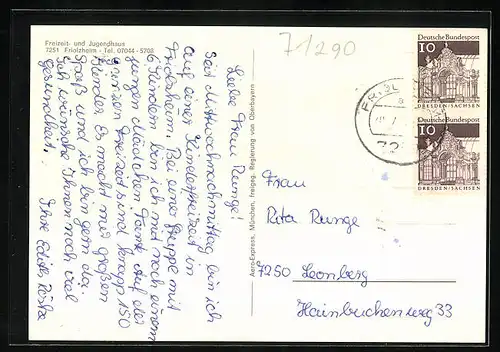 Freizeit- und Jugendhaus
7251 Friolzheim - Tel. 07044 - 5708
Liebe Frau Runge!
Seit Mittwochnachmittag bin ich
auf einer Kinderfreizeit in
Friolzheim. Bei einer Gruppe mit
6 Kindern bin ich mit noch einem
jungen Mädchen Tante. Auf der
ganzen Freizeit sind knapp 150
Kinder. Es macht mir großen
Spaß und ich bin gern da.
Ich wünsche Ihnen noch viel
Gesundheit.
Ihre Edith
Aero-Express, München, Freigeg. Regierung von Oberbayern
71290
Deutsche Bundespost
10
DRESDEN/SACHSEN
Deutsche Bundespost
10
DRESDEN/SACHSEN
Frau
Rita Runge
7250 Leonberg
Hainbuchenweg 33